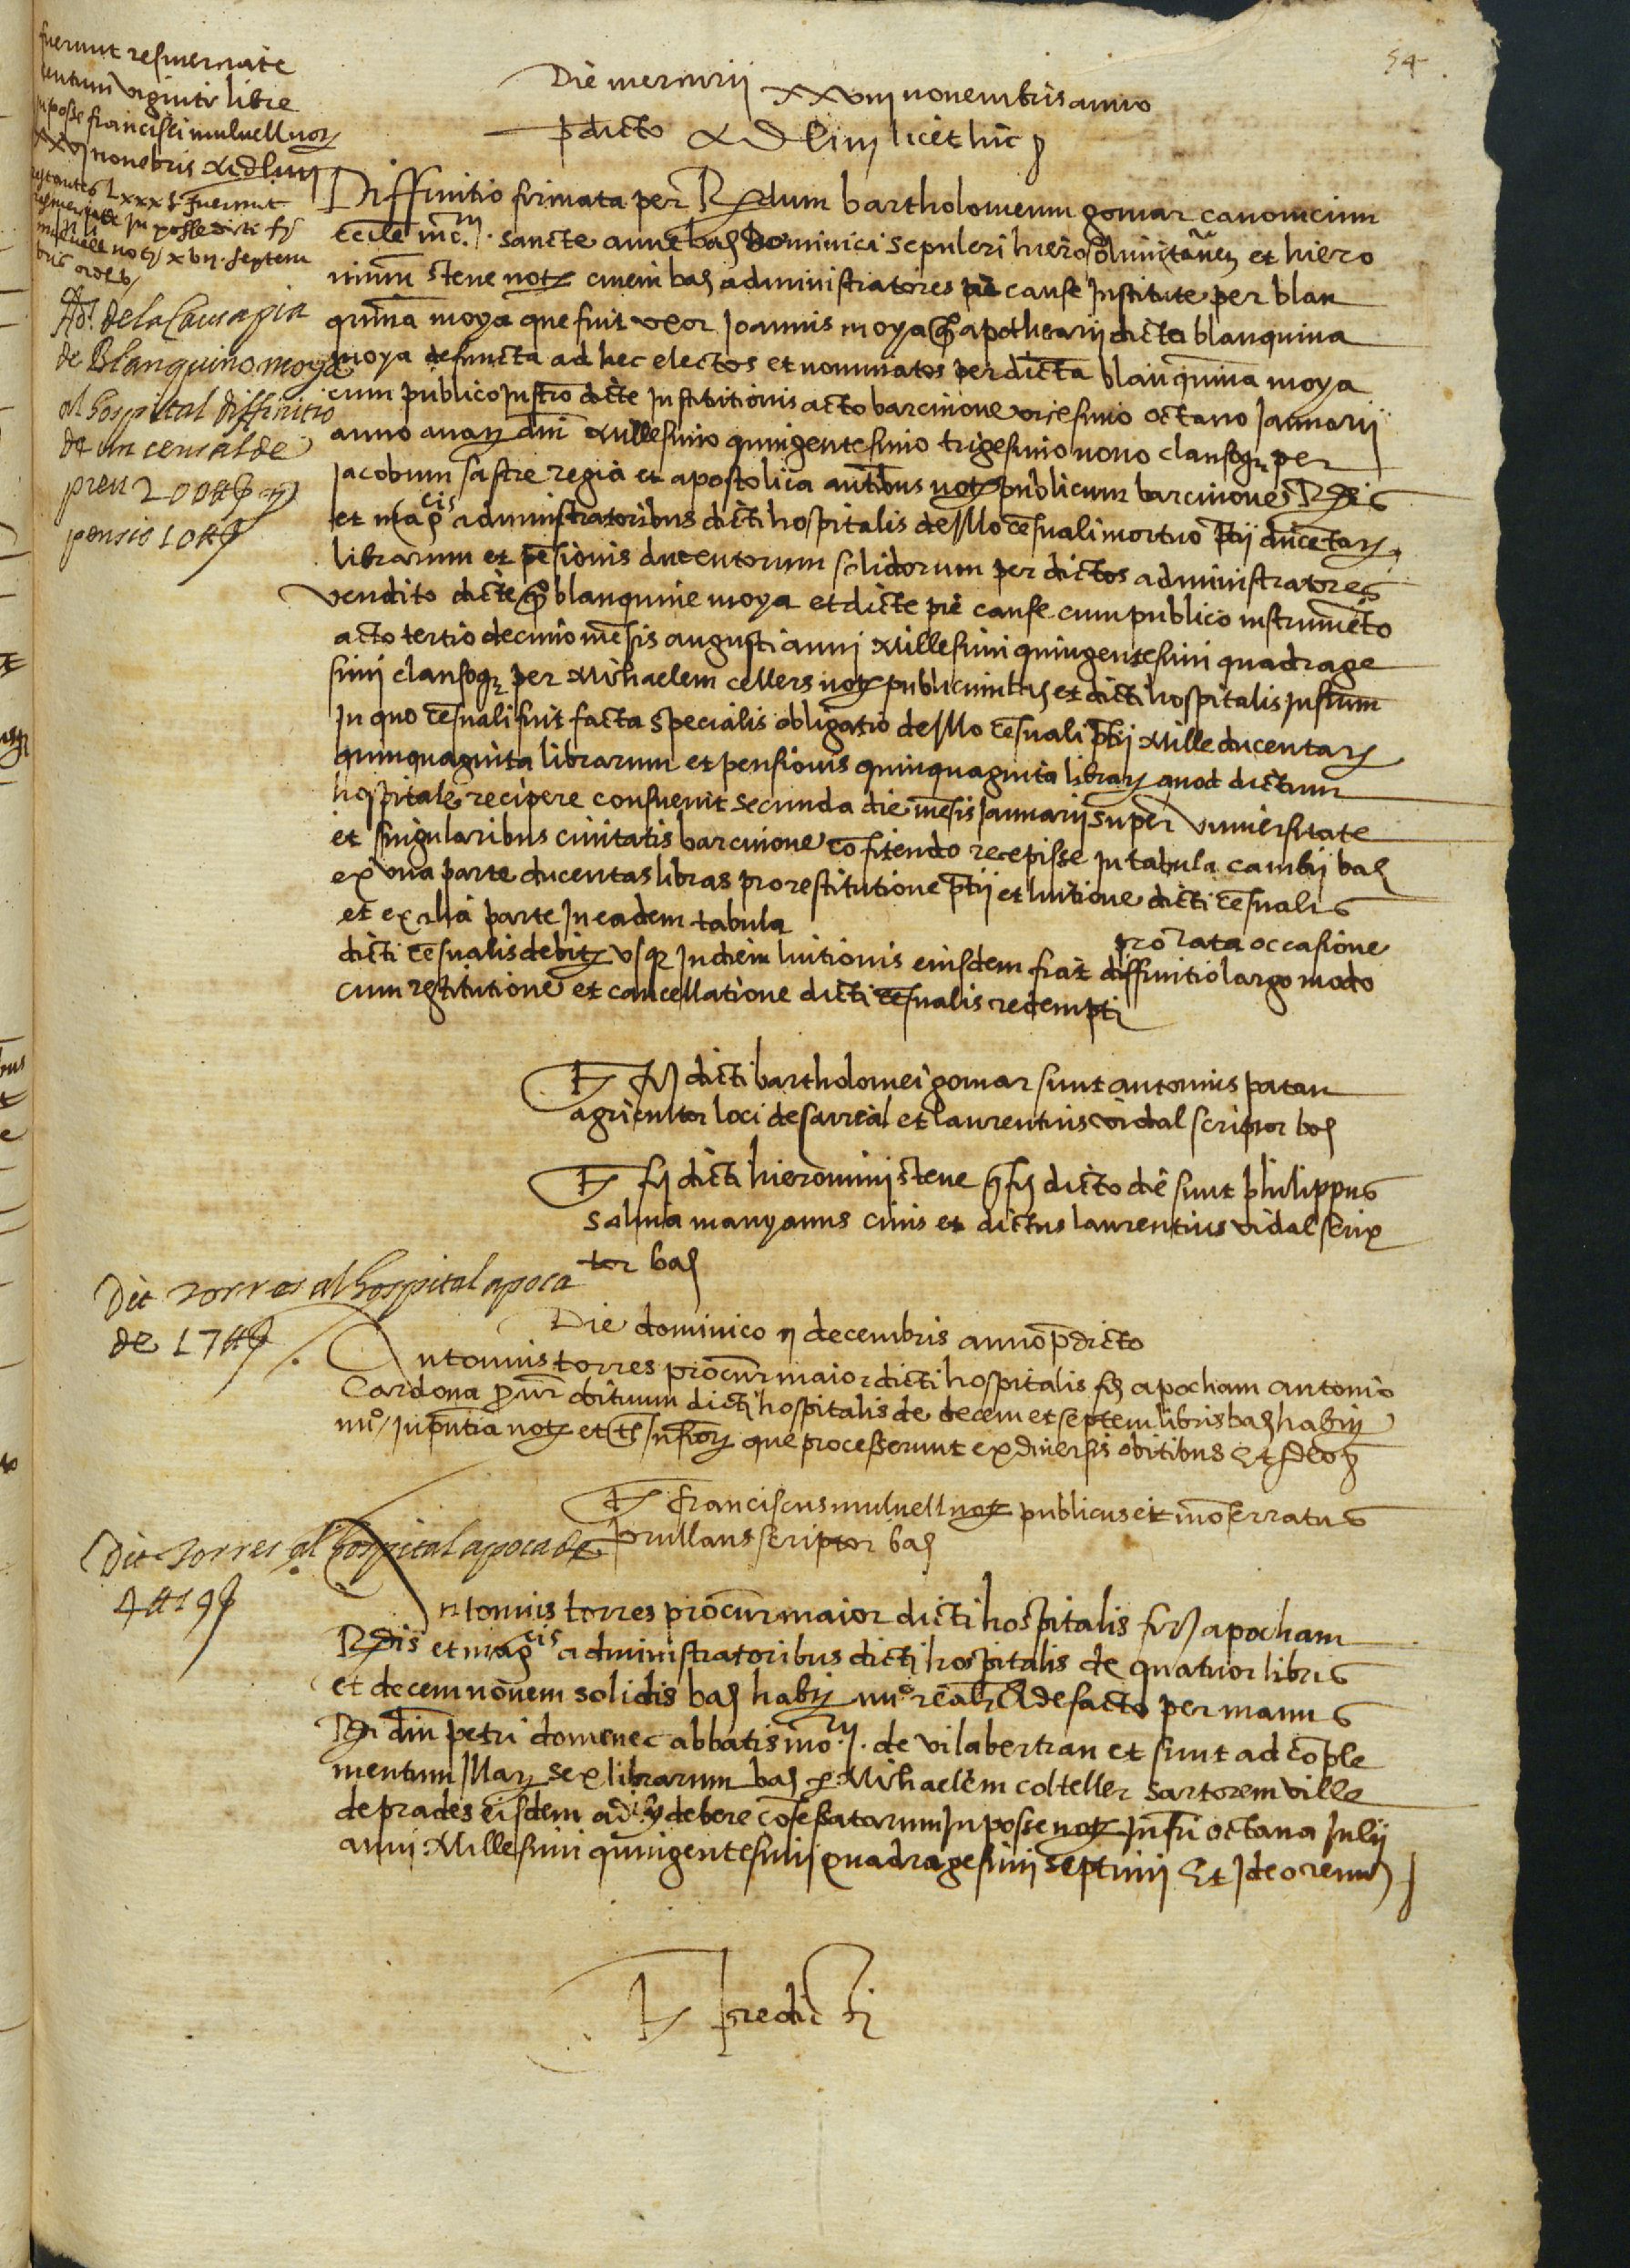 54
Die mercurij xxviiij novembris anno
pdicto MDLiiij licet hic
fuerunt resmerciate
centum viginti libre
in posse francisci mulnell noty
xxvj novebris MDLiiij
restantes Lxxx fuerunt
in posse dicti fr
mulnell noty x bij septem
bris
Adt dela Causa pia
de Blanquina moya
al hospital diffinitio
de un censal de
preu 200 ℔
pensio 10 ℔
Diffinitio firmata per Rdum bartholomeum gomar canonicum
Eccle sancte anne bar dominici sepulcri hierosolimitane et hiero
nimum steve noty civem bar administratores pie cause institute per blan
quina moya que fuit uxor Joannis moya q apothecarij dicta blanquina
moya defuncta ad hec electos et nominatos per dicta blanquina moya
cum publico instro dicte institutionis acto barcinone vicesimo octavo Januarij
anno a nay dni Millesimo quingentesimo trigesimo nono clausoq per
Jacobum sastre regia et apostolica autbus noty publicum barcinone Rdis
et magcis administratoribus dicti hospitalis de illo cesuali mortuo ptij ducetary
librarum et pesionis ducentorum solidorum per dictos administratores
vendito dicte q blanquine moya et dicte pie cause cum publico instrumeto
acto tertio decimo mesis augusti anni Millesimi quingentesimi quadrage
simi clausoq per Michaelem cellers noty publicum bar et dicti hospitalis instrum
In quo cesuali fuit facta specialis obligatio de illo cesuali ptij Mille ducentary
quinquaginta librarum et pensionis quinquaginta library quod dictum
hospitale recipere consuevit secunda die mesis Januarij super universitate
et singularibus civitatis barcinone cofitendo recepisse in tabula cambij bar
ex una parte ducentas libras pro restitutione ptij et luitione dicti cesualis
et ex alia parte in eadem tabula pro rata occasione
dicti cesualis debity usq in diem luitionis eiusdem fiat diffinitio largo modo
cum restitutione et cancellatione dicti cesualis redempti
T fr dicti bartholomei gomar sunt antonius patau
agricultor loci de sarreal et laurentius vidal scriptor bar
T fr dicti hieronimi steve q fr dicto die sunt philippus
Salvia manyanus civis et dictus laurentius vidal scrip
tor bar
Dit torres al hospital apoca
de 17 ℔
Die dominico ij decembris anno pdicto
Antonius torres procur maior dicti hospitalis fr apocham antonio
Cardona pcur obituum dicti hospitalis de decem et septem libris bar habij
nuo in pntia noty et ts infrory que processerunt ex diversis obitibus Et ideo
T Franciscus mulnell noty publicus et moserratus
prullans scriptor bar
Dit torres al hospital apoca de
4 ℔ 19 ß
Antonius torres procur maior dicti hospitalis fr apocham
Rdis et magcis administratoribus dicti hospitalis de quatuor libris
et decem novem solidis bar habij nuo realr et de facto per manus
Rdi dni petri domenec abbatis mo de vilabertran et sunt ad cople
mentum illary sex librarum bar p Michaelem colteller sartorem ville
de prades eisdem debere cofessatarum in posse noty infri octava Julij
anni Millesimi quingentesimi quadragesimi septimi Et Ideo renu
T predicti